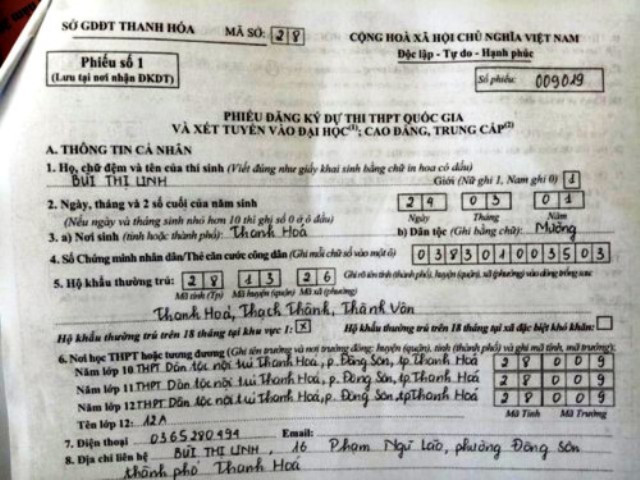 SỞ GDĐT THANH HÓA MÃ SỐ: 2 8 CỘNG HOÀ XÃ HỘI CHỦ NGHĨA VIỆT NAM
Độc lập - Tự do - Hạnh phúc
Phiếu số 1
(Lưu tại nơi nhận ĐKDT)
Số phiếu: 009019
PHIẾU ĐĂNG KÝ DỰ THI THPT QUỐC GIA
VÀ XÉT TUYỂN VÀO ĐẠI HỌC(1); CAO ĐẲNG, TRUNG CẤP(2)
A. THÔNG TIN CÁ NHÂN
1. Họ, chữ đệm và tên của thí sinh (Viết đúng như giấy khai sinh bằng chữ in hoa có dấu)
BÙI THỊ LINH Giới (Nữ ghi 1, Nam ghi 0) 1
2. Ngày, tháng và 2 số cuối của năm sinh 29 03 01
(Nếu ngày và tháng sinh nhỏ hơn 10 thì ghi số 0 ở ô đầu) Ngày Tháng Năm
3. a) Nơi sinh (tỉnh hoặc thành phố): Thanh Hoá b) Dân tộc (Ghi bằng chữ): Mường
4. Số Chứng minh nhân dân/Thẻ căn cước công dân (Ghi mỗi chữ số vào một ô) 038301003503
5. Hộ khẩu thường trú: 28 13 26 Ghi rõ tên tỉnh (thành phố), huyện (quận), xã (phường) vào dòng trống sau:
Mã tỉnh (Tp) Mã huyện (quận) Mã xã (phường)
Thanh Hoá, Thạch Thành, Thành Vân
Hộ khẩu thường trú trên 18 tháng tại khu vực 1: X Hộ khẩu thường trú trên 18 tháng tại xã đặc biệt khó khăn:
6. Nơi học THPT hoặc tương đương (Ghi tên trường và nơi trường đóng: huyện (quận), tỉnh (thành phố) và ghi mã tỉnh, mã trường):
Năm lớp 10 THPT Dân tộc nội trú Thanh Hoá, p. Đông Sơn, tp. Thanh Hoá 28 009
Năm lớp 11 THPT Dân tộc nội trú Thanh Hoá, p. Đông Sơn, tp. Thanh Hoá 28 009
Năm lớp 12 THPT Dân tộc nội trú Thanh Hoá, p. Đông Sơn, tp Thanh Hoá 28 009
Tên lớp 12: 12A Mã Tỉnh Mã Trường
7. Điện thoại 0365280494 Email:
8. Địa chỉ liên hệ BÙI THỊ LINH, 16 Phạm Ngũ Lão, phường Đông Sơn
thành phố Thanh Hoá